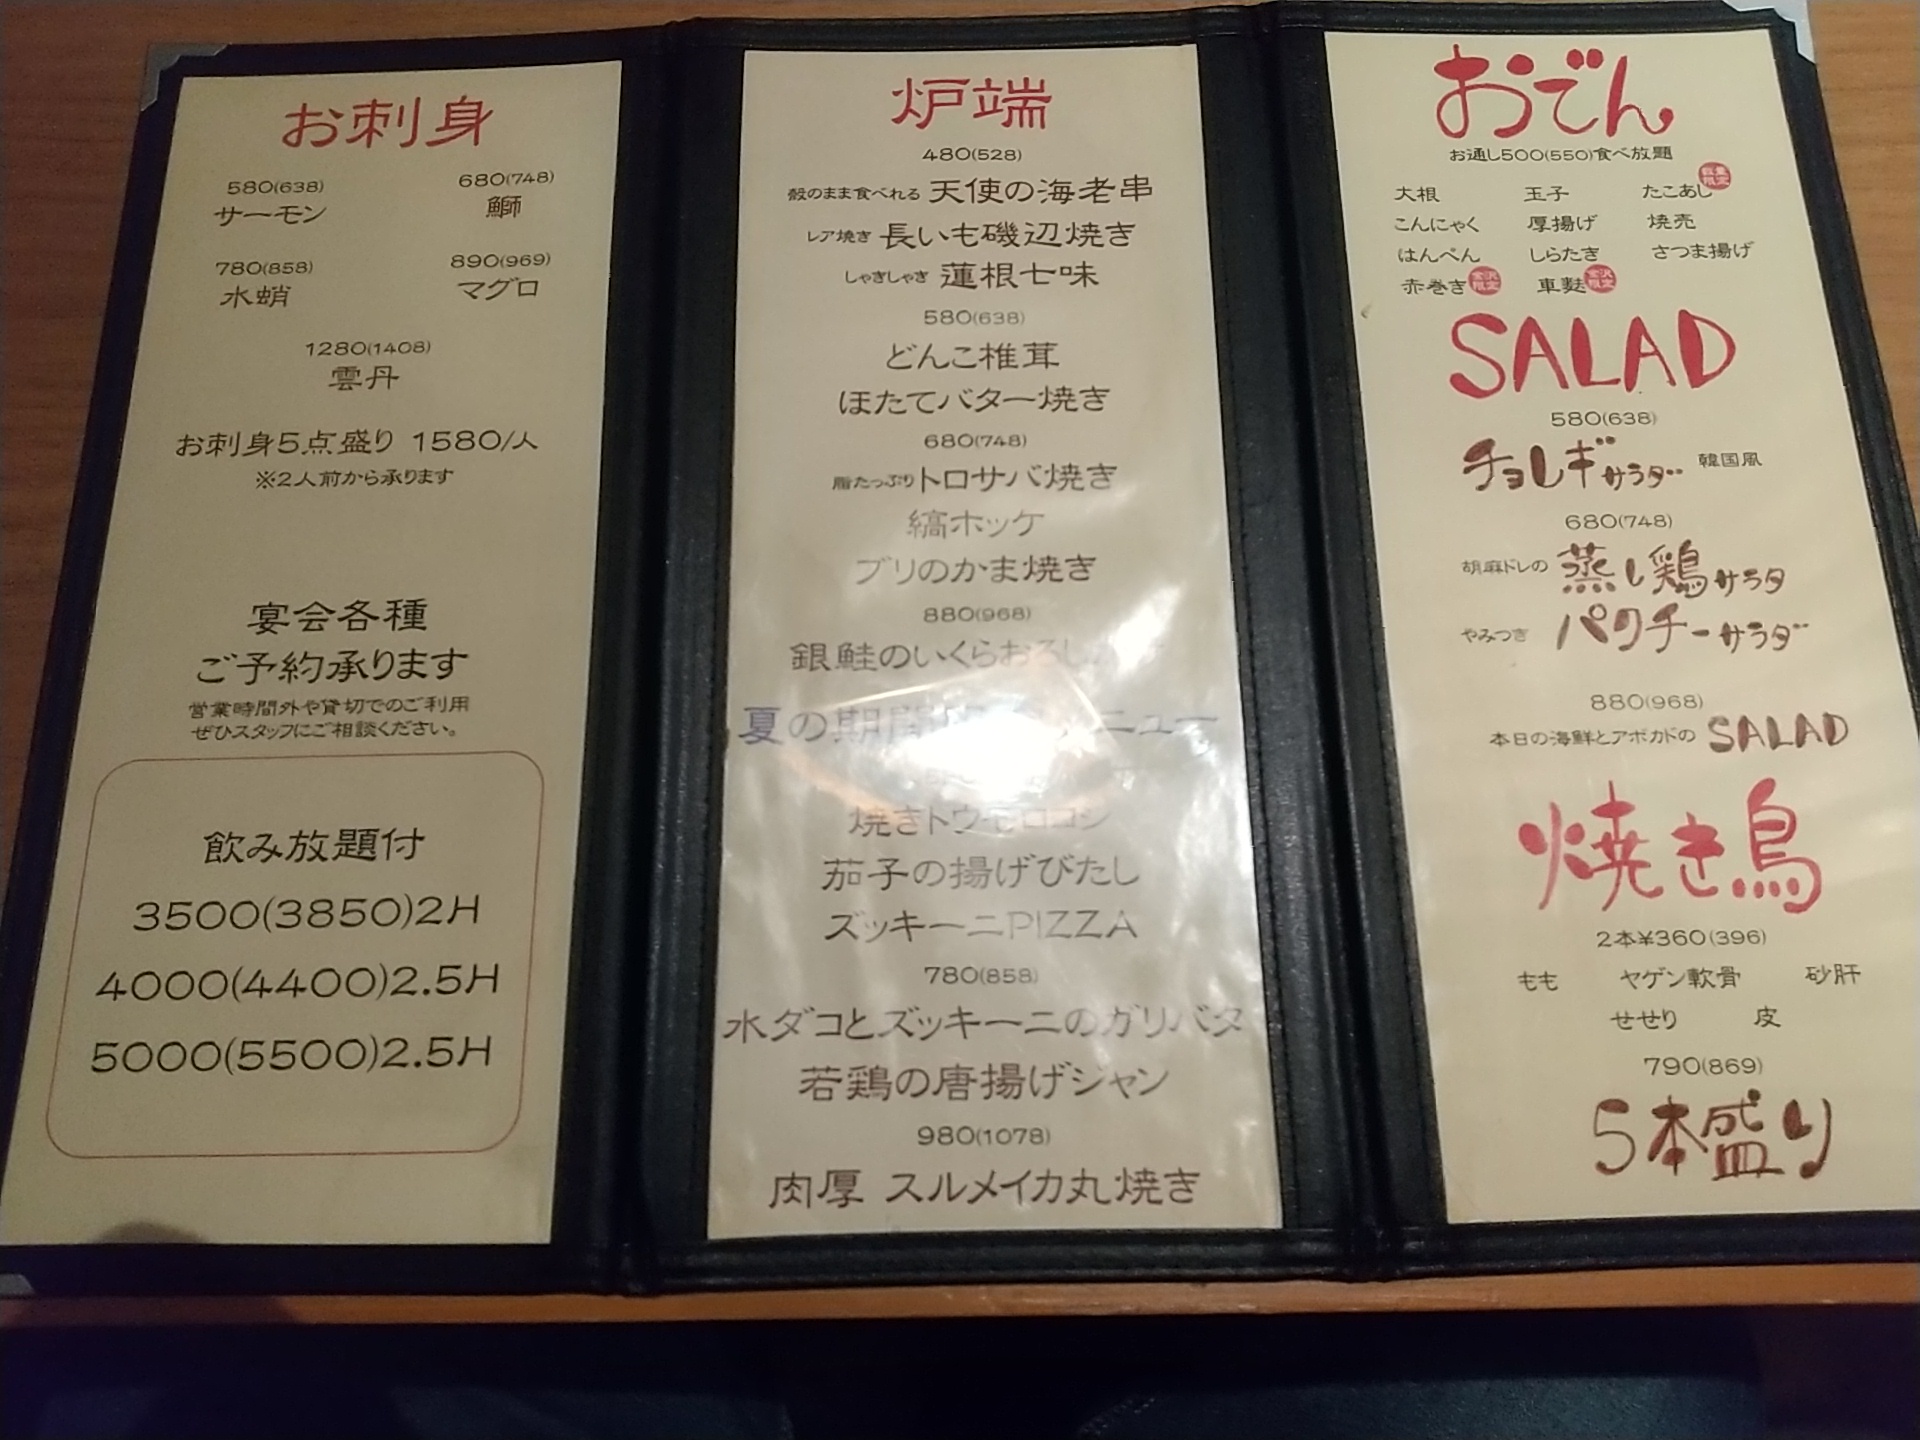 お刺身
580(638) 680(748)
サーモン 鰤
780(858) 890(969)
水蛸 マグロ
1280(1408)
雲丹
お刺身5点盛り 1580/人
※2人前から承ります
宴会各種
ご予約承ります
営業時間外や貸切でのご利用
ぜひスタッフにご相談ください。
飲み放題付
3500(3850)2H
4000(4400)2.5H
5000(5500)2.5H
炉端
480(528)
殻のまま食べれる 天使の海老串
レア焼き 長いも磯辺焼き
しゃきしゃき 蓮根七味
580(638)
どんこ椎茸
ほたてバター焼き
680(748)
脂たっぷりトロサバ焼き
縞ホッケ
ブリのかま焼き
880(968)
銀鮭のいくらおろし
夏の期間 ニュー
焼きトウモロコシ
茄子の揚げびたし
ズッキーニPIZZA
780(858)
水ダコとズッキーニのガリバタ
若鶏の唐揚げジャン
980(1078)
肉厚 スルメイカ丸焼き
おでん
お通し500(550)食べ放題
大根 玉子 たこあし 数量限定
こんにゃく 厚揚げ 焼売
はんぺん しらたき さつま揚げ
赤巻き 金沢限定 車麩 金沢限定
SALAD
580(638)
チョレギサラダ 韓国風
680(748)
胡麻ドレの 蒸し鶏サラダ
やみつき パクチーサラダ
880(968)
本日の海鮮とアボカドの SALAD
焼き鳥
2本¥360(396)
もも ヤゲン軟骨 砂肝
せせり 皮
790(869)
5本盛り